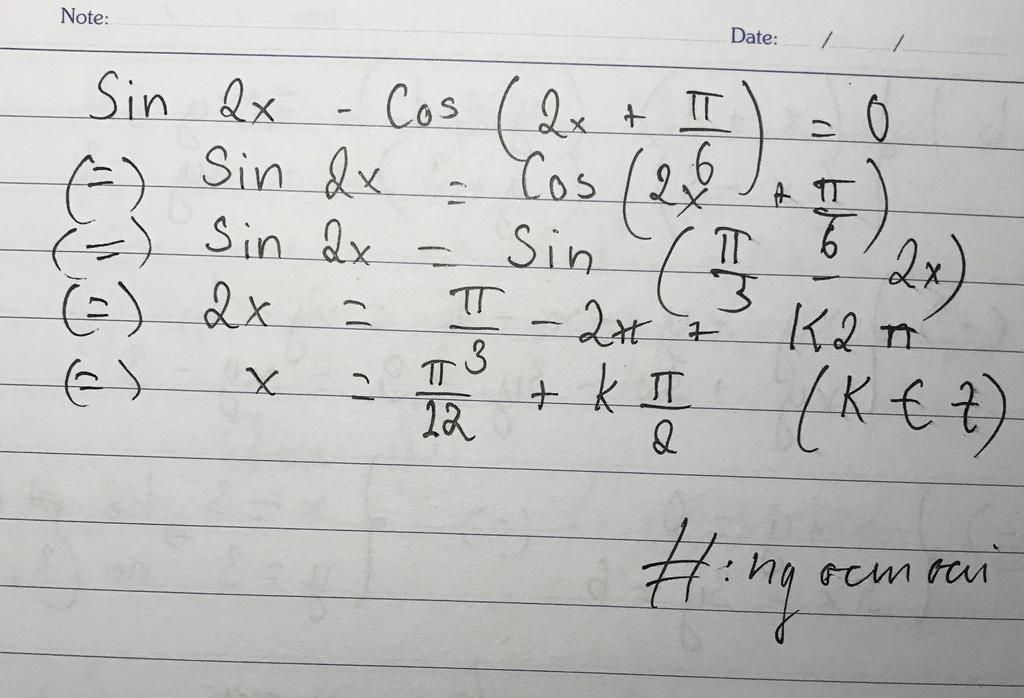 Note:
Date: / /
Sin 2x - Cos (2x + π/6) = 0
(=) Sin 2x = Cos (2x + π/6)
(=) Sin 2x = Sin (π/3 - 2x)
(=) 2x = π/3 - 2x + K2π
(=) x = π/12 + k π/2 (K € z)
#: ngocmai